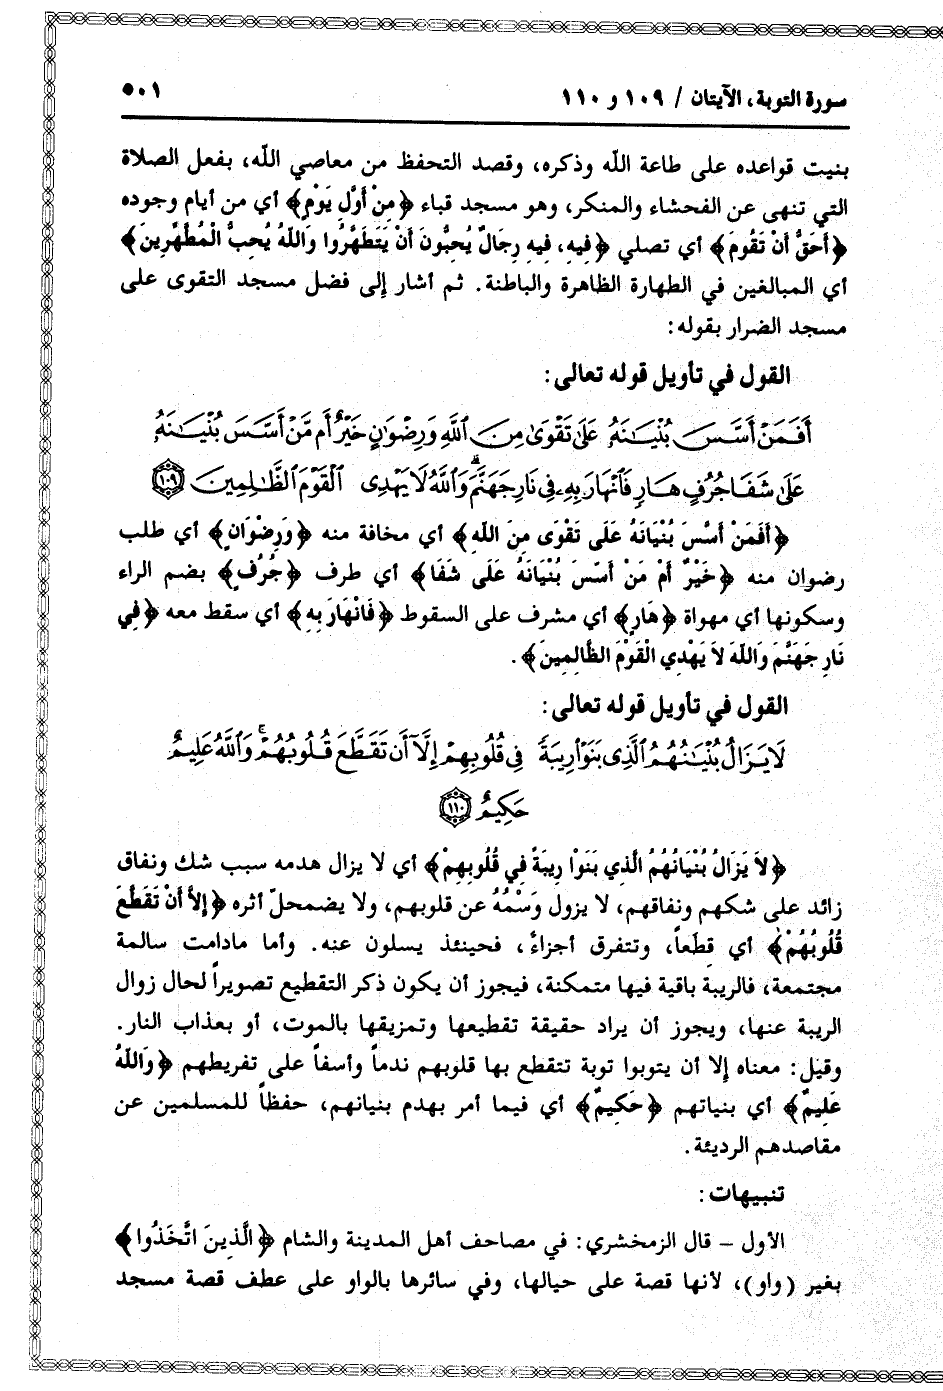 سورة التوبة، الآيتان / ١٠٩ و ١١٠ ٥٠١
بنيت قواعده على طاعة الله وذكره، وقصد التحفظ من معاصي الله، بفعل الصلاة
التي تنهى عن الفحشاء والمنكر، وهو مسجد قباء ﴿مِنْ أَوَّلِ يَوْمٍ﴾ أي من أيام وجوده
﴿أَحَقُّ أَنْ تَقُومَ﴾ أي تصلي ﴿فِيهِ، فِيهِ رِجَالٌ يُحِبُّونَ أَنْ يَتَطَهَّرُوا وَاللهُ يُحِبُّ الْمُطَّهِّرِينَ﴾
أي المبالغين في الطهارة الظاهرة والباطنة. ثم أشار إلى فضل مسجد التقوى على
مسجد الضرار بقوله:
القول في تأويل قوله تعالى:
أَفَمَنْ أَسَّسَ بُنْيَـٰنَهُۥ عَلَىٰ تَقْوَىٰ مِنَ ٱللَّهِ وَرِضْوَٰنٍ خَيْرٌ أَم مَّنْ أَسَّسَ بُنْيَـٰنَهُۥ
عَلَىٰ شَفَا جُرُفٍ هَارٍ فَٱنْهَارَ بِهِۦ فِى نَارِ جَهَنَّمَ ۗ وَٱللَّهُ لَا يَهْدِى ٱلْقَوْمَ ٱلظَّـٰلِمِينَ ١٠٩
﴿أَفَمَنْ أَسَّسَ بُنْيَانَهُ عَلَى تَقْوَى مِنَ اللهِ﴾ أي مخافة منه ﴿وَرِضْوَانٍ﴾ أي طلب
رضوان منه ﴿خَيْرٌ أَمْ مَنْ أَسَّسَ بُنْيَانَهُ عَلَى شَفَا﴾ أي طرف ﴿جُرُفٍ﴾ بضم الراء
وسكونها أي مهواة ﴿هَارٍ﴾ أي مشرف على السقوط ﴿فَانْهَارَ بِهِ﴾ أي سقط معه ﴿فِي
نَارِ جَهَنَّمَ وَاللهُ لاَ يَهْدِي الْقَوْمَ الظَّالِمِينَ﴾.
القول في تأويل قوله تعالى:
لَا يَزَالُ بُنْيَـٰنُهُمُ ٱلَّذِى بَنَوْا۟ رِيبَةً فِى قُلُوبِهِمْ إِلَّآ أَن تَقَطَّعَ قُلُوبُهُمْ ۗ وَٱللَّهُ عَلِيمٌ
حَكِيمٌ ١١٠
﴿لاَ يَزَالُ بُنْيَانُهُمُ الَّذِي بَنَوْا رِيبَةً فِي قُلُوبِهِمْ﴾ أي لا يزال هدمه سبب شك ونفاق
زائد على شكهم ونفاقهم، لا يزول وَسْمُهُ عن قلوبهم، ولا يضمحلّ أثره ﴿إِلاَّ أَنْ تَقَطَّعَ
قُلُوبُهُمْ﴾ أي قِطَعاً، وتتفرق أجزاءً، فحينئذ يسلون عنه. وأما مادامت سالمة
مجتمعة، فالريبة باقية فيها متمكنة، فيجوز أن يكون ذكر التقطيع تصويراً لحال زوال
الريبة عنها، ويجوز أن يراد حقيقة تقطيعها وتمزيقها بالموت، أو بعذاب النار.
وقيل: معناه إلا أن يتوبوا توبة تتقطع بها قلوبهم ندماً وأسفاً على تفريطهم ﴿وَاللهُ
عَلِيمٌ﴾ أي بنياتهم ﴿حَكِيمٌ﴾ أي فيما أمر بهدم بنيانهم، حفظاً للمسلمين عن
مقاصدهم الرديئة.
تنبيهات:
الأول – قال الزمخشري: في مصاحف أهل المدينة والشام ﴿الَّذِينَ اتَّخَذُوا﴾
بغير (واو)، لأنها قصة على حيالها، وفي سائرها بالواو على عطف قصة مسجد